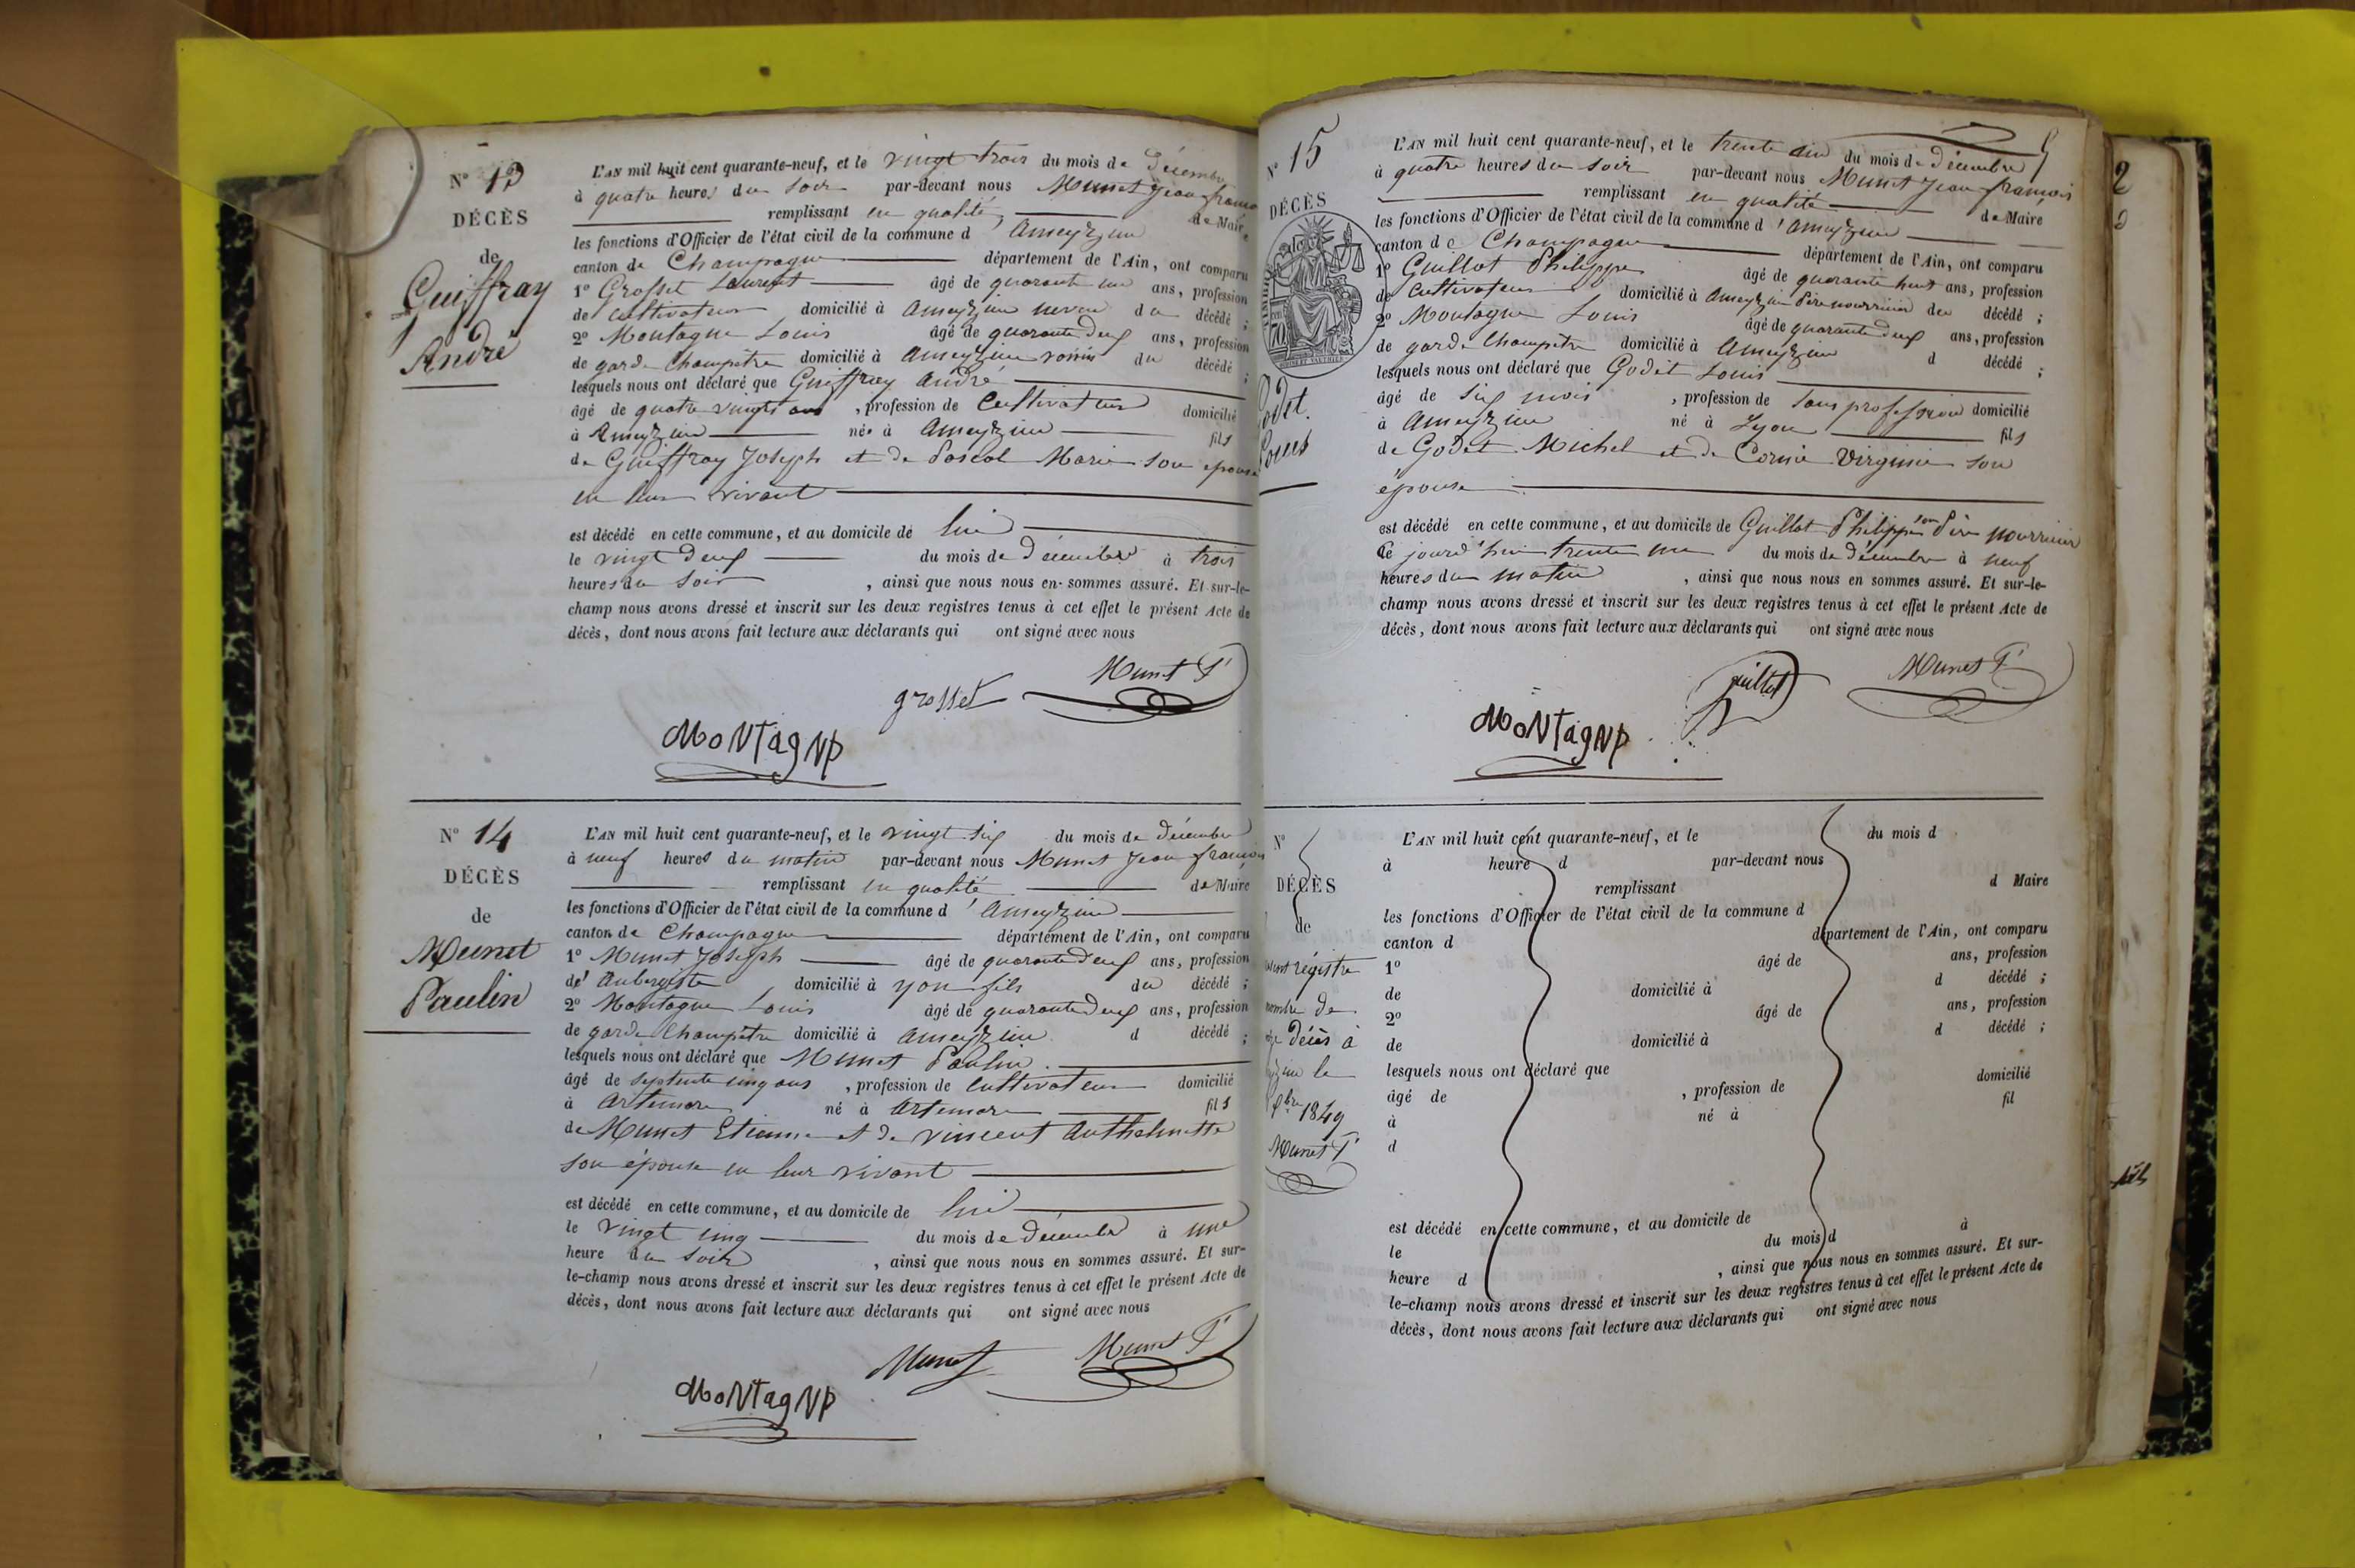 N° 13
DÉCÈS
de
Guiffray
André
L'AN mil huit cent quarante-neuf, et le vingt trois du mois de Décembre
à quatre heures du soir par-devant nous Munet Jean franço
remplissant en qualité de Maire
les fonctions d'Officier de l'état civil de la commune d'Ameyzieu
canton de Champagne département de l'Ain, ont comparu
1° Grosset Laurent âgé de quarante un ans, profession
de cultivateur domicilié à Ameyzieu neveu du décédé ;
2° Montagne Louis âgé de quarante deux ans, profession
de garde Champêtre domicilié à Ameyzieu voisin du décédé ;
lesquels nous ont déclaré que Guiffray André
âgé de quatre vingts ans , profession de Cultivateur domicilié
à Ameyzieu né à Ameyzieu fils
de Guiffray Joseph et de Pascal Marie son épouse
en leur vivant
est décédé en cette commune, et au domicile de lui
le vingt deux du mois de Décembre à trois
heures du soir , ainsi que nous nous en sommes assuré. Et sur-le-
champ nous avons dressé et inscrit sur les deux registres tenus à cet effet le présent Acte de
décès, dont nous avons fait lecture aux déclarants qui ont signé avec nous
Munet F
grosset
MoNTagNe
N° 14
DÉCÈS
de
Munet
Paulin
L'AN mil huit cent quarante-neuf, et le vingt six du mois de décembre
à neuf heures du matin par-devant nous Munet Jean françois
remplissant en qualité de Maire
les fonctions d'Officier de l'état civil de la commune d'Ameyzieu
canton de Champagne département de l'Ain, ont comparu
1° Munet Joseph âgé de quarante deux ans, profession
de Aubergiste domicilié à yon fils du décédé ;
2° Montagne Louis âgé de quarante deux ans, profession
de garde Champêtre domicilié à Ameyzieu d décédé ;
lesquels nous ont déclaré que Munet Paulin
âgé de septente cinq ans , profession de cultivateur domicilié
à Artemare né à Artemare fils
de Munet Etienne et de vincent Anthelmette
son épouse en leur vivant
est décédé en cette commune, et au domicile de lui
le vingt cinq du mois de décembre à une
heure du soir , ainsi que nous nous en sommes assuré. Et sur-
le-champ nous avons dressé et inscrit sur les deux registres tenus à cet effet le présent Acte de
décès, dont nous avons fait lecture aux déclarants qui ont signé avec nous
Munet Munet F
MoNTagNe
N° 15
DÉCÈS
Godet.
Louis
L'AN mil huit cent quarante-neuf, et le trente un du mois de décembre
à quatre heures du soir par-devant nous Munet Jean françois
remplissant en qualité de Maire
les fonctions d'Officier de l'état civil de la commune d'Ameyzieu
canton de Champagne département de l'Ain, ont comparu
1° Guillot Philippe âgé de quarante huit ans, profession
de Cultivateur domicilié à Ameyzieu Père nourricier du décédé ;
2° Montagne Louis âgé de quarante deux ans, profession
de garde Champêtre domicilié à Ameyzieu d décédé ;
lesquels nous ont déclaré que Godet Louis
âgé de six mois , profession de sans profession domicilié
à Ameyzieu né à Lyon fils
de Godet Michel et de Cornie Virginie son
épouse
est décédé en cette commune, et au domicile de Guillot Philippe son Père nourricier
Ce jourd'hui trente un du mois de décembre à neuf
heures du matin , ainsi que nous nous en sommes assuré. Et sur-le-
champ nous avons dressé et inscrit sur les deux registres tenus à cet effet le présent Acte de
décès, dont nous avons fait lecture aux déclarants qui ont signé avec nous
guillot Munet F
MoNTagNe
N°
DÉCÈS
de
registre
de
décès à
le
1849
Munet F
L'AN mil huit cent quarante-neuf, et le du mois d
à heure d par-devant nous
remplissant d Maire
les fonctions d'Officier de l'état civil de la commune d
canton d département de l'Ain, ont comparu
1° âgé de ans, profession
de domicilié à d décédé ;
2° âgé de ans, profession
de domicilié à d décédé ;
lesquels nous ont déclaré que
âgé de , profession de domicilié
à né à fil
d
est décédé en cette commune, et au domicile de
le du mois d à
heure d , ainsi que nous nous en sommes assuré. Et sur-
le-champ nous avons dressé et inscrit sur les deux registres tenus à cet effet le présent Acte de
décès, dont nous avons fait lecture aux déclarants qui ont signé avec nous